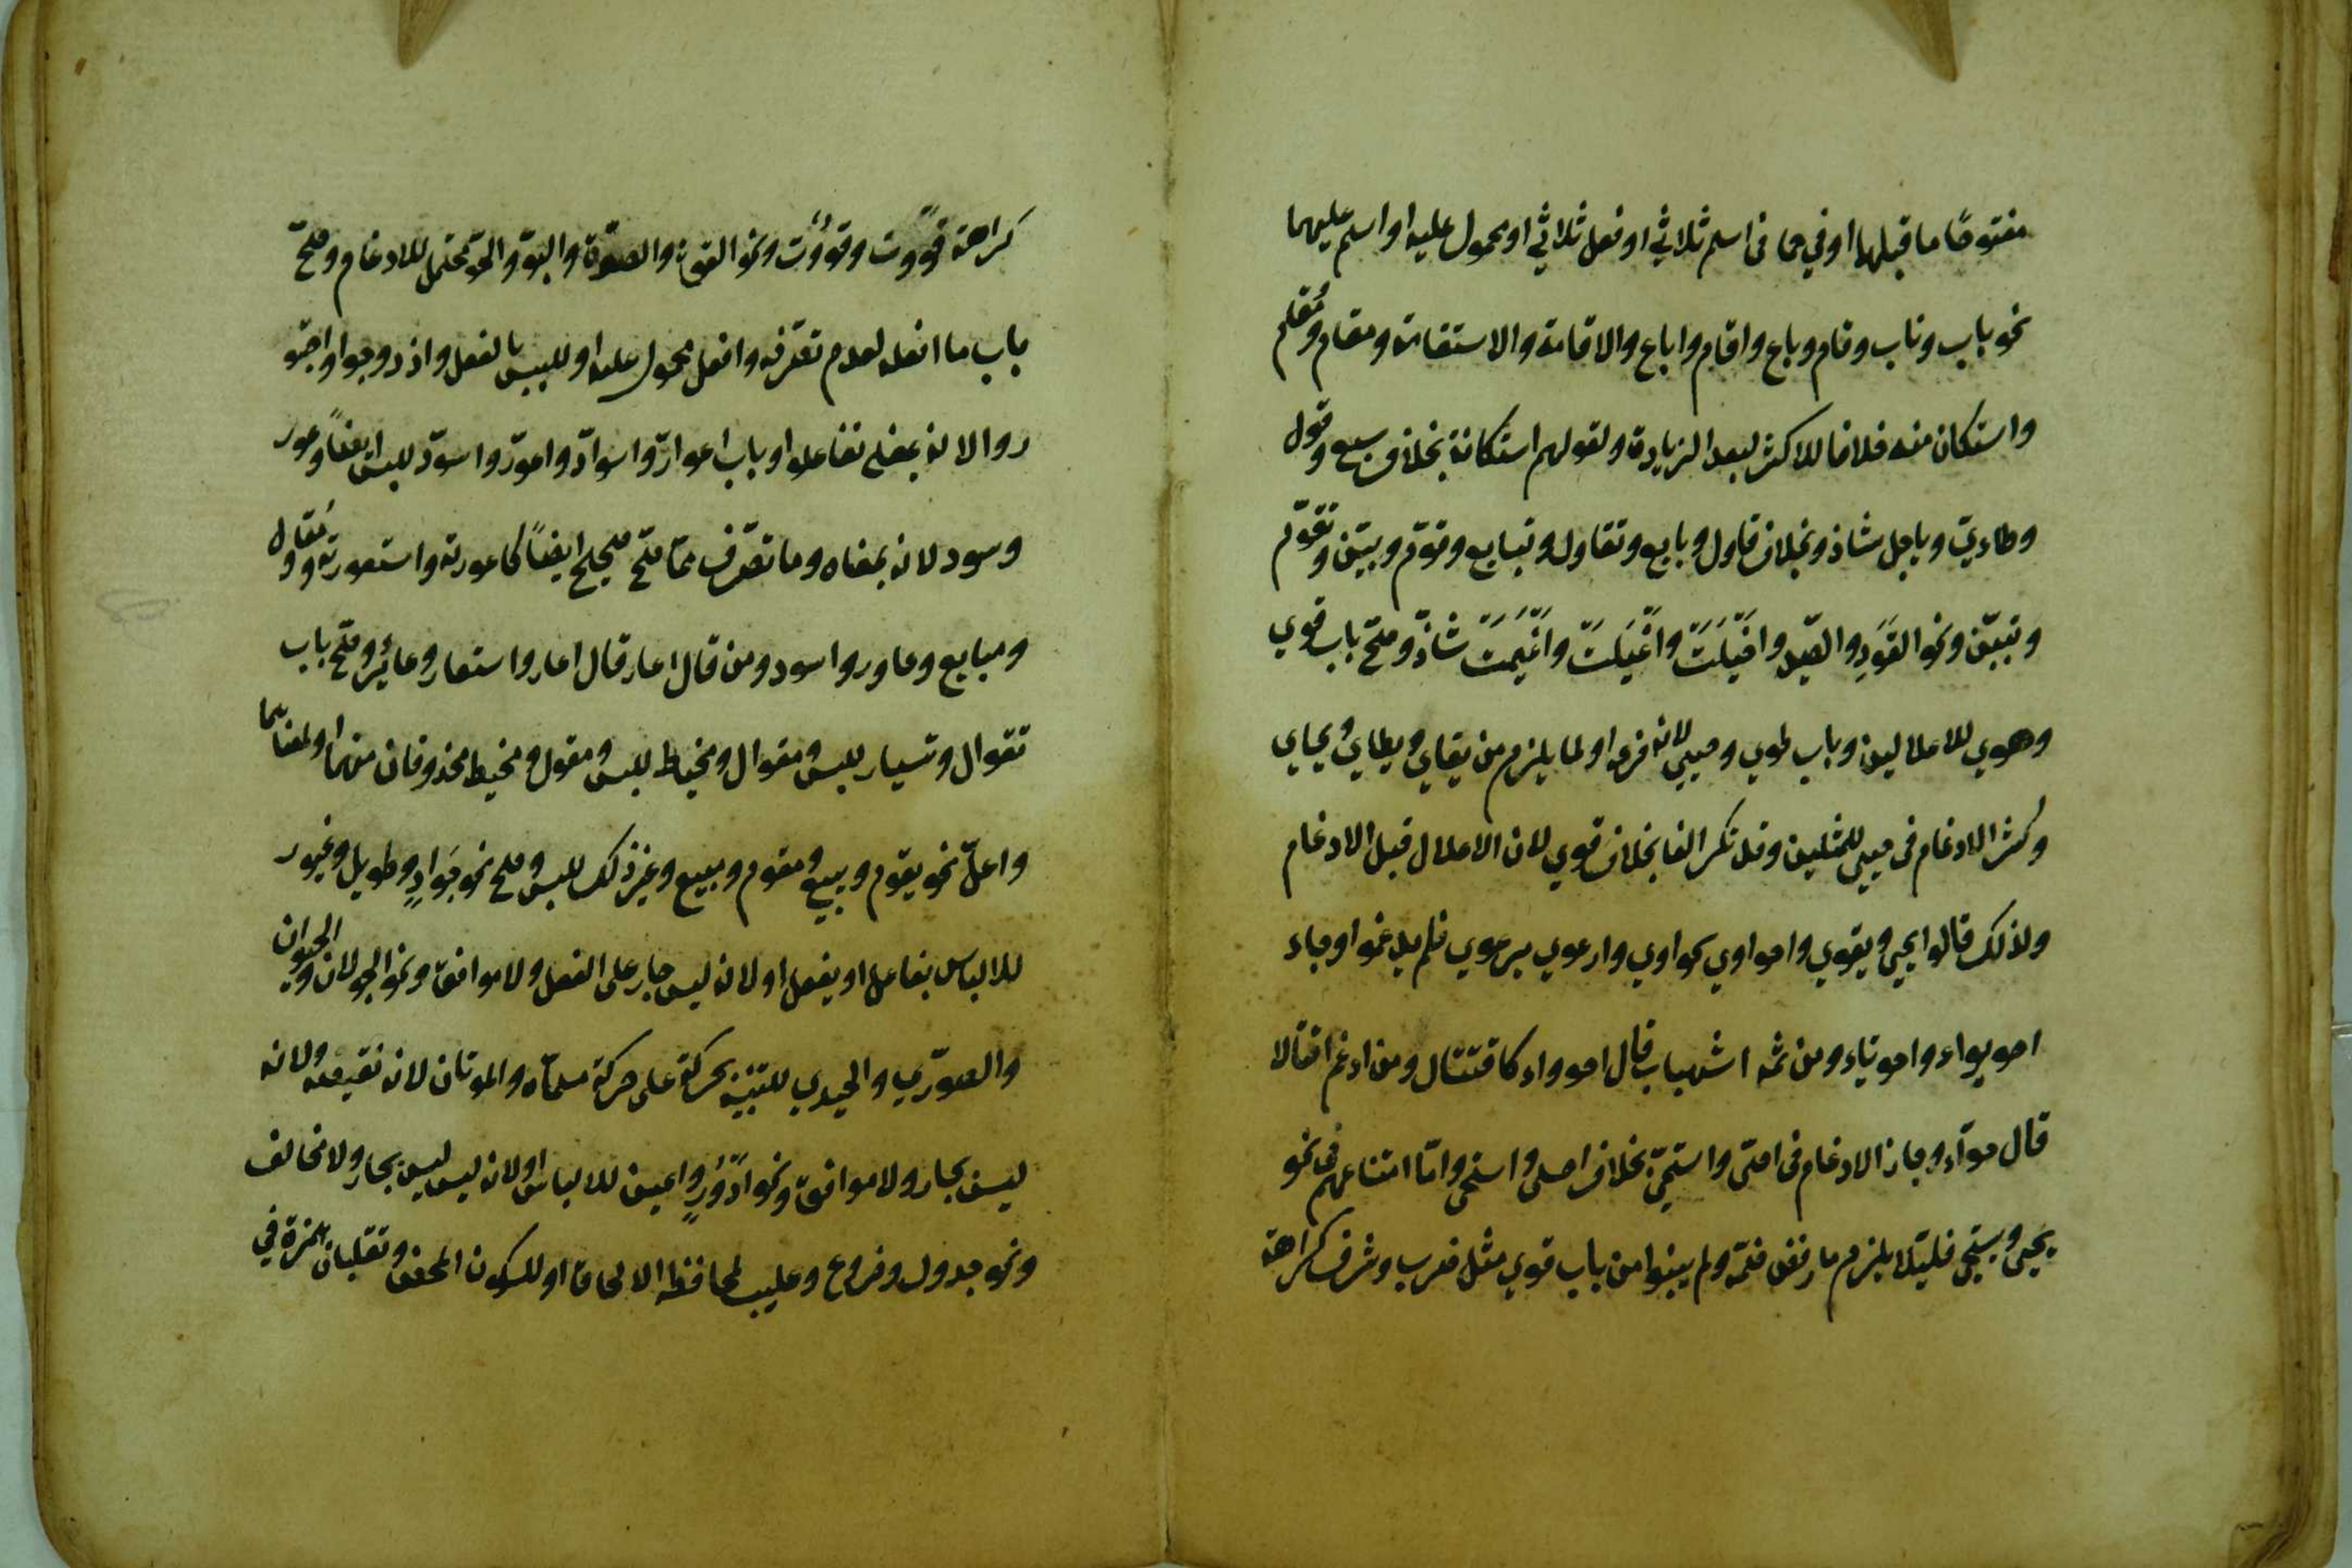 مفتوحًا ما قبلهما او في حكمه فى اسم ثلاثي او فعل ثلاثي او محمول عليه او اسم عليهما
نحو باب وناب وقام وباع واقام واباع والاقامة والاستقامة ومقام ومُقام
واستكان منه خلافا للاكثر لبعد الزيادة ولقولهم استكانة بخلاف بيع وقول
وطاءيّ وياجل شاذ وبخلاف قاول وبايع وتقاول وتبايع وقوّم وبيّن وتقوّم
وتبيّن ونحو القَوَدِ والصيد واخيَلَتَ واغيَلَتَ واغيَمَت شاذّ وصحّ باب قوي
وهوي للاعلالين وباب طوي وحيي لانه فرعه او لما يلزم من يقاي ويطاي ويحاي
وكثر الادغام فى حيي للمثلين وقد تكسر الفا بخلاف قوي لان الاعلال قبل الادغام
ولذلك قالوا يحيى ويقوي واحواوي يحواوي وارعوي يرعوي فلم يدغموا وجاء
احويواء واحوياء ومن ثمه اشهباب قال احوواء كاقتتال ومن ادغم اقتتالا
قال حوّاء وجاز الادغام فى احيى واستحيى بخلاف احيى واستحيى وامّا امتناعهم فى نحو
يحيى ويستحيى فلئلا يلزم ما رفض ضمّه ولم يبنوا من باب قوي مثل ضرب وشرف كراهة
كراهة قووت وقوُوت ونحو القوة والصوّة والبوّ والجوّ محتمل للادغام وصحّ
باب ما افعله لعدم تصرّفه وافعل محمول عليه او للبس بالفعل وازدوجوا واجتو
روا لانه بمعنى تفاعلوا وباب اعوارّ واسوادّ واعورّ واسودّ للبس ايضاً وعور
وسود لانه بمعناه وما تصرّف ممّا صحّ صحيح ايضاً كاعورته واستعورته ومُقاول
ومبايع وعاور واسود ومن قال عار قال اعار واستعار وعائر وصحّ باب
تقوال وتسيار للبس ومقوال ومخياط للبس ومقول ومخيط محذوفان منهما او لمعناهما
واعلّ نحو يقوم ويبيع ومقوم ومبيع وغير ذلك للبس وصح نحو جَوَادٍ وطويل وغيور
للالباس بفاعل او بفعل او لانه ليس جار على الفعل ولا موافق ونحو الجولان والحيوان
والصوّري والحيدي للتنبيه بحركته على حركة مسمّاه والموتان لانه نقيضه ولانه
ليس بجار ولا موافق ونحو ادْوُرٍ واعين للالباس او لانه ليس بجار ولا مخالف
ونحو جدول وخروع وعليب لمحافظة الالحاق او للسكون المحض وتقلبان همزة في